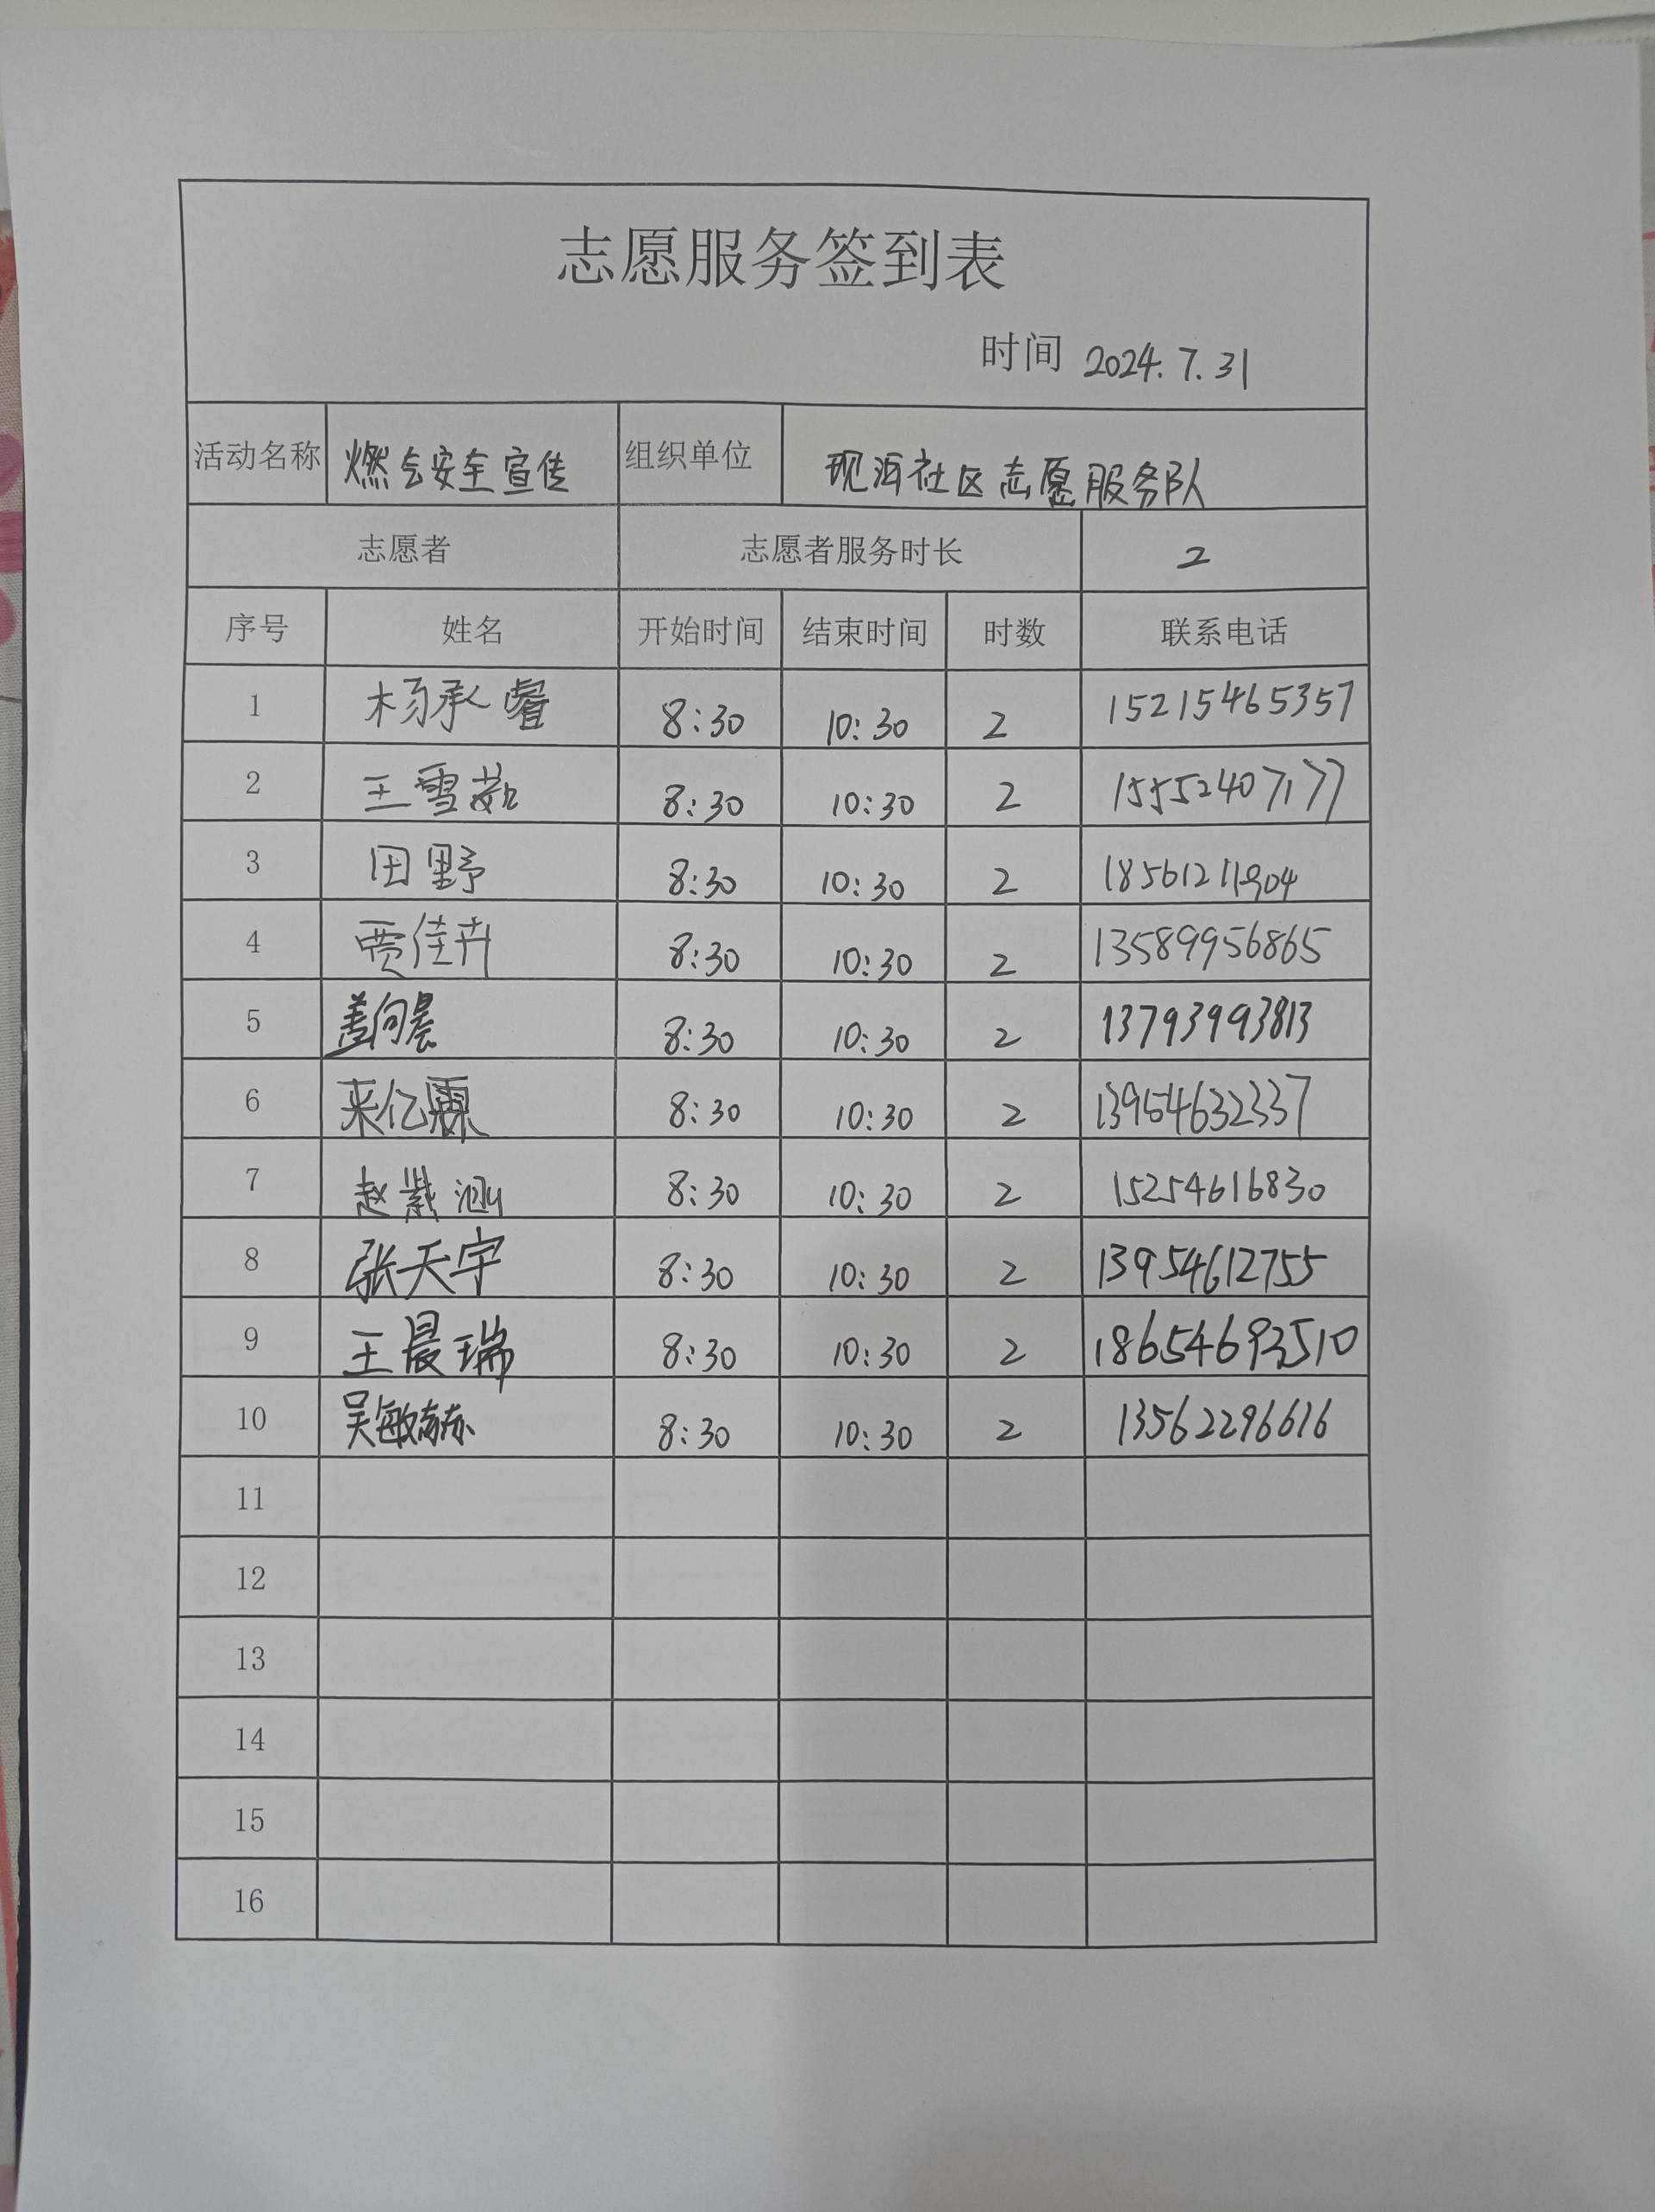 志愿服务签到表
时间 2024.7.31
活动名称 燃气安全宣传 组织单位 现河社区志愿服务队
志愿者 志愿者服务时长 2
序号 姓名 开始时间 结束时间 时数 联系电话
1 杨承睿 8:30 10:30 2 15215465357
2 王雪茹 8:30 10:30 2 15552407177
3 田野 8:30 10:30 2 18561211904
4 贾佳卉 8:30 10:30 2 13589956865
5 盖向晨 8:30 10:30 2 13793993813
6 来亿霖 8:30 10:30 2 13954632337
7 赵紫涵 8:30 10:30 2 15254616830
8 张天宇 8:30 10:30 2 13954612755
9 王晨瑞 8:30 10:30 2
10 吴敏赫 8:30 10:30 2 13562296616
11
12
13
14
15
16